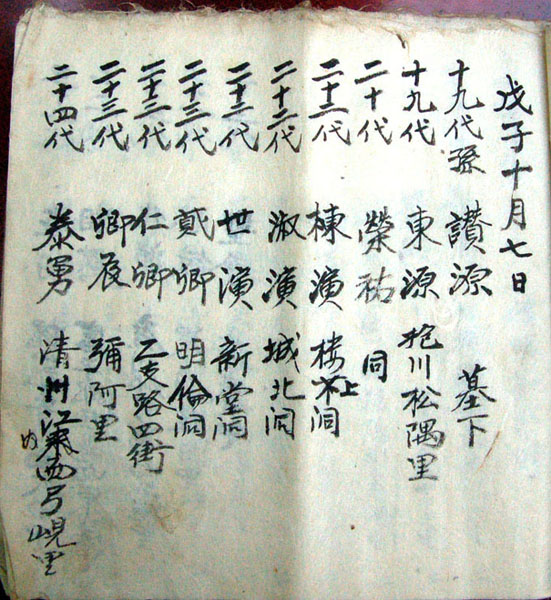 戊子十月七日
十九代孫 讃源 墓下
十九代 東源 抱川松隅里
二十代 榮祐 同
二十二代 棟演 樓上洞
二十二代 淑演 城北洞
二十二代 世演 新堂洞
二十三代 貳卿 明倫洞
二十二代 仁卿 乙支路四街
二十三代 卿辰 彌阿里
二十四代 泰勇 清州江西弓峴里
內